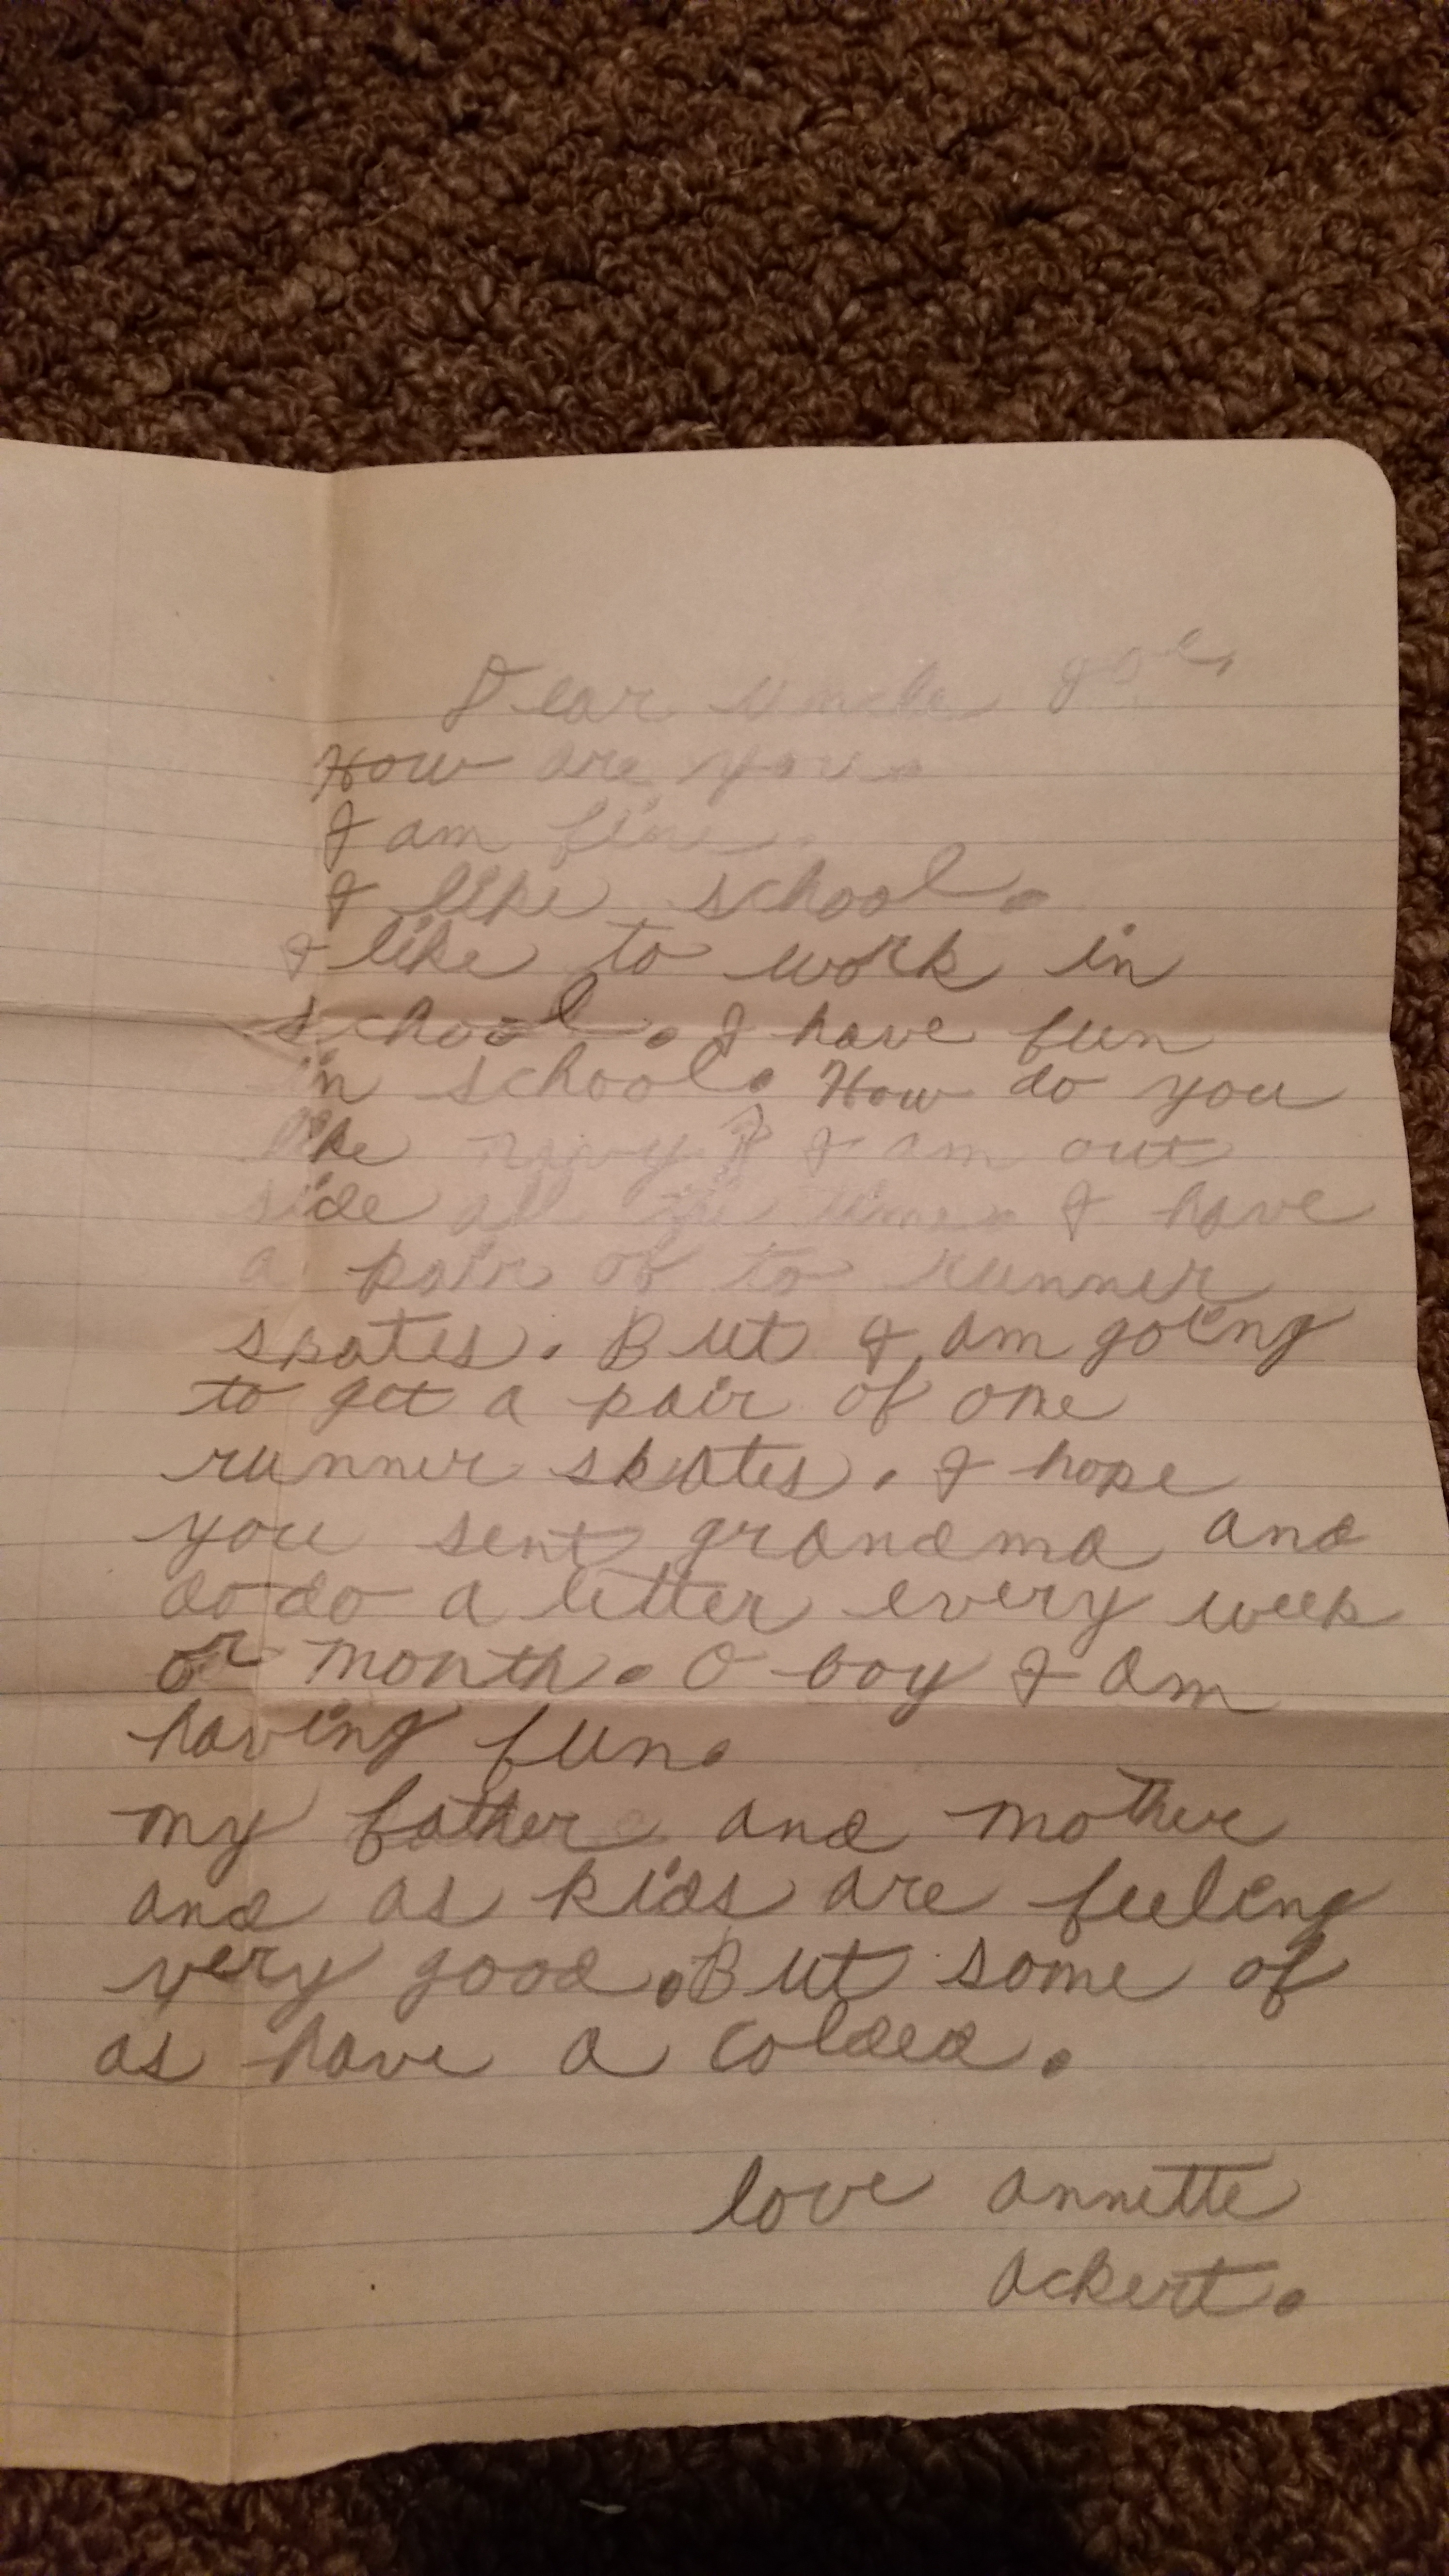 Dear uncle Joe,
How are you.
I am fine.
I like school.
I like to work in
school. I have fun
in school. How do you
like navy? I am out
side all the time. I have
a pair of to runner
skates. But I am going
to get a pair of one
runner skates. I hope
you sent grandma and
dodo a letter every week
or month. O boy I am
having fun.
my father and mother
and as kids are feeling
very good. But some of
as have a colded.
love annette
ackert.